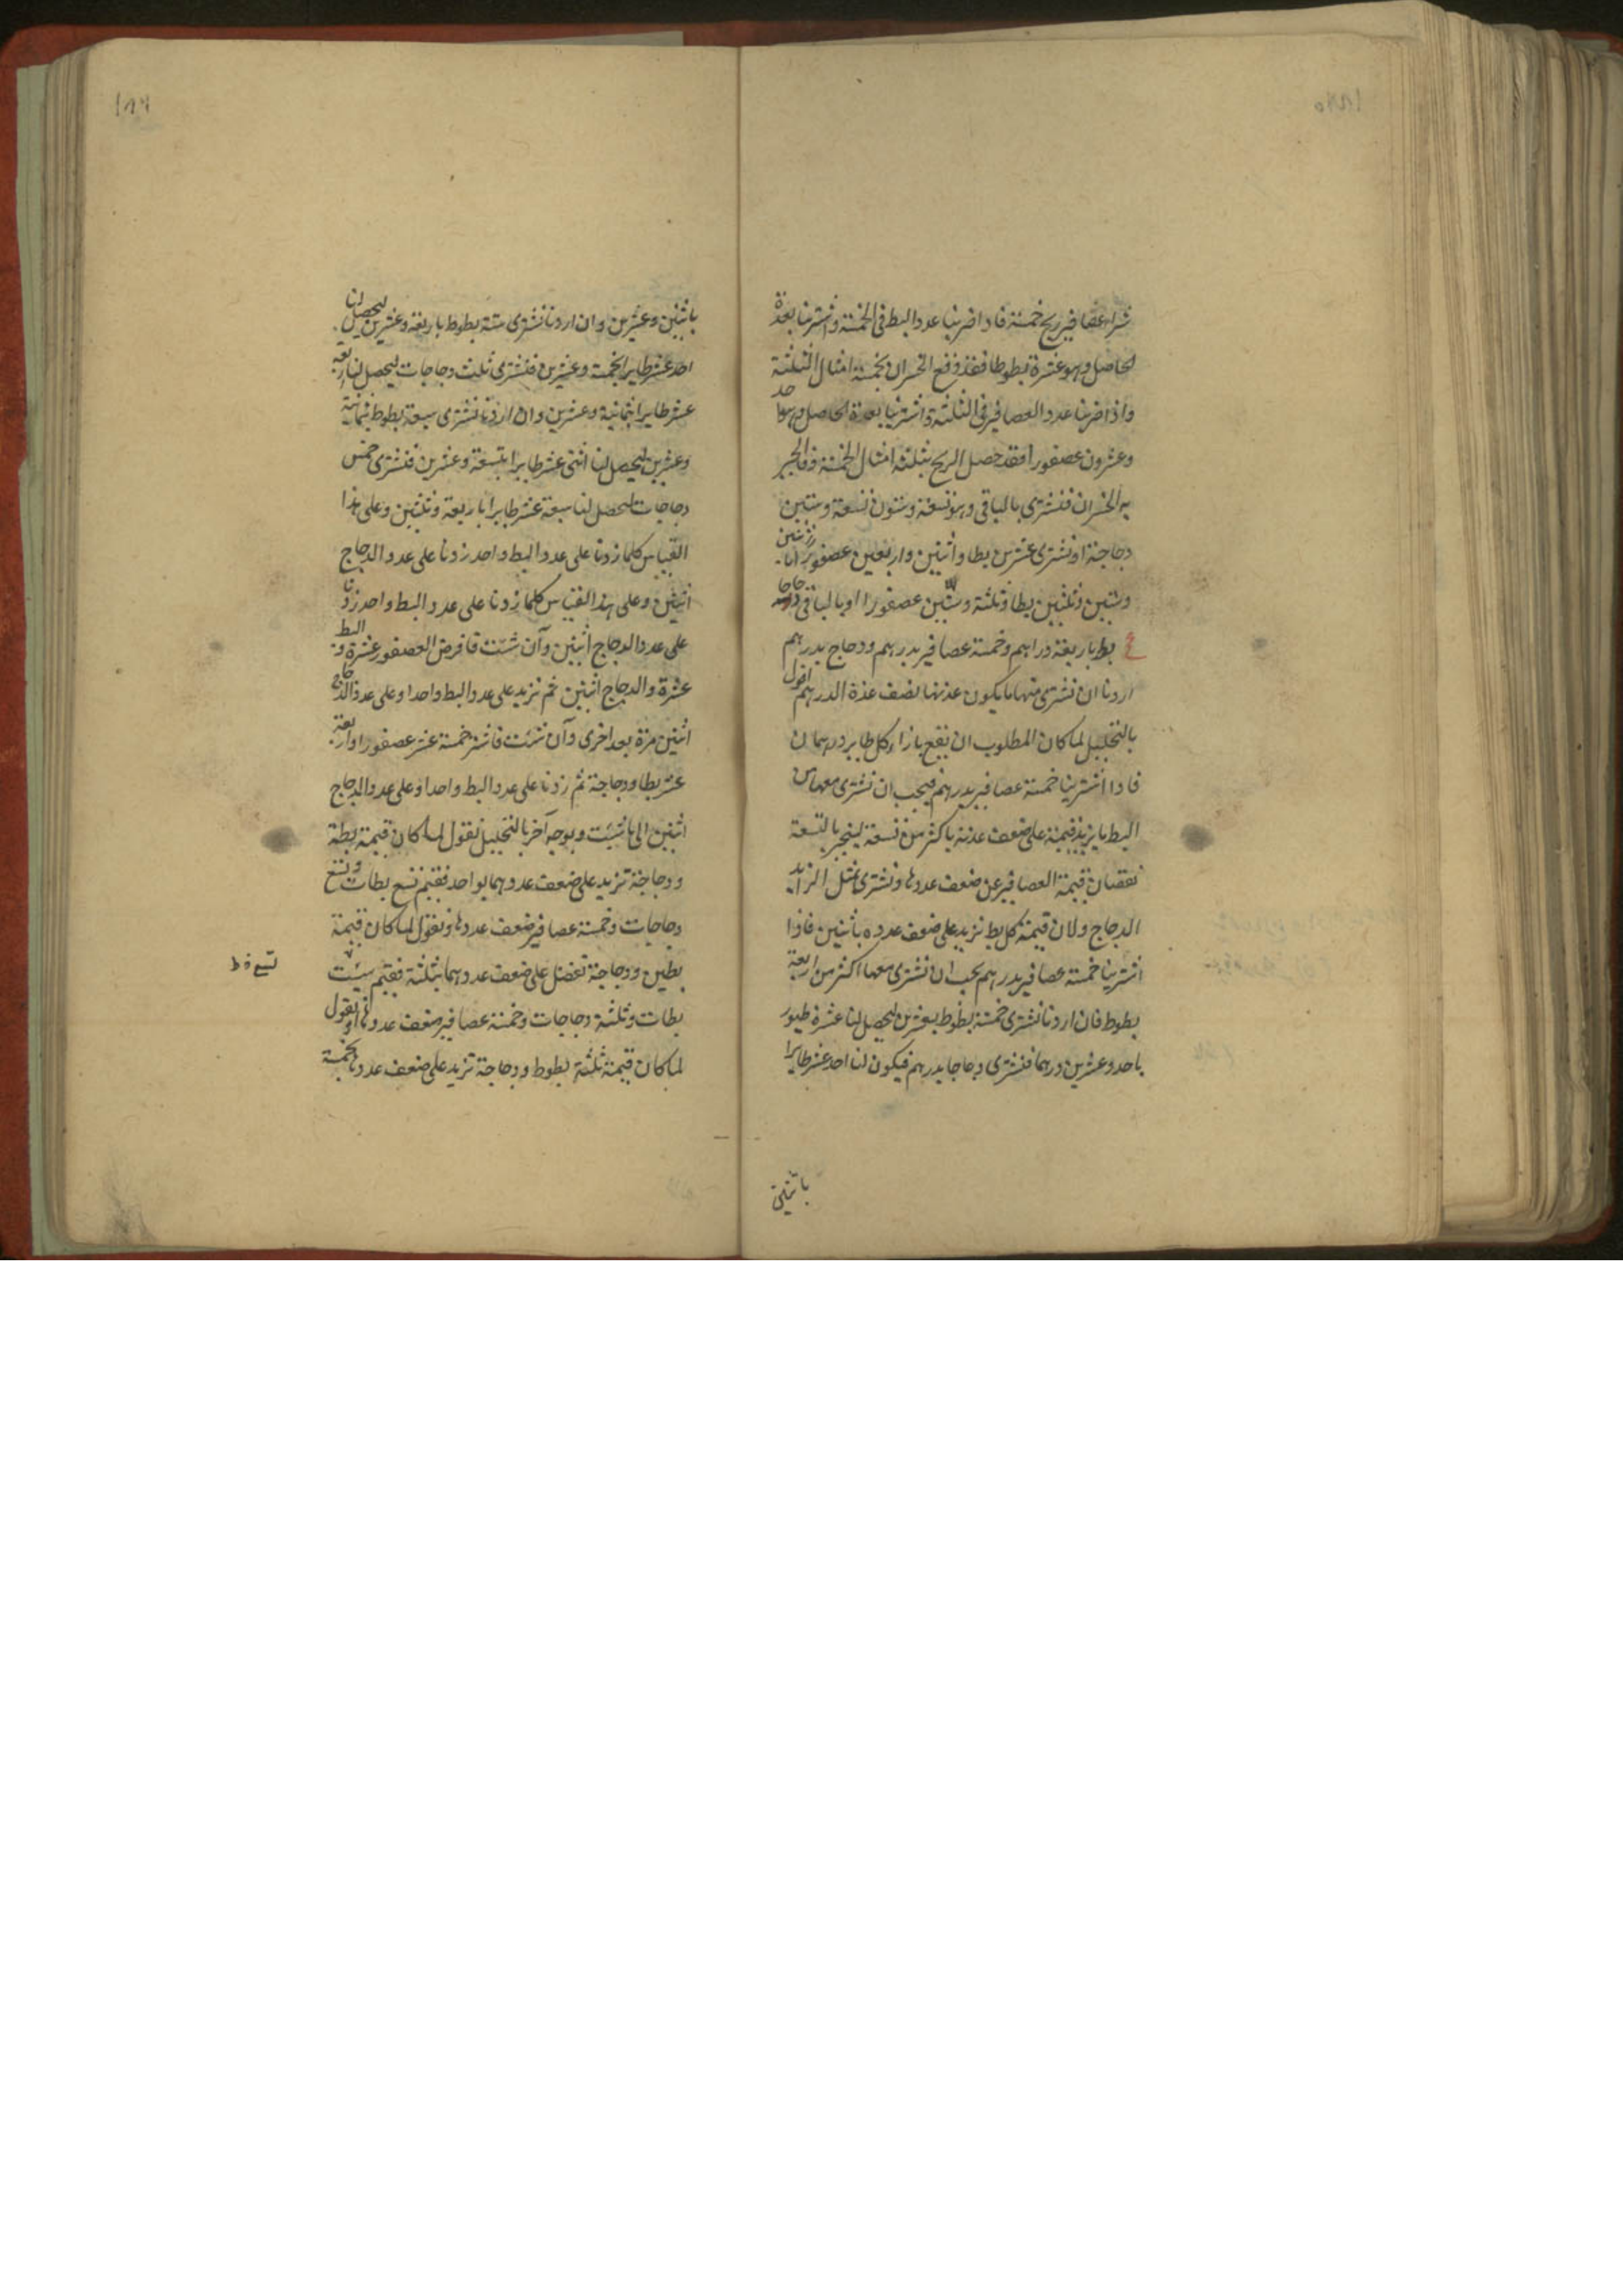 ١٨٥
شراء عصافير ربح خمسة فاذا ضربنا عدد البط فى الخمسة واشترينا بعدة
الحاصل وهو عشرة بطوطا فقد وقع الخسران بخمسة امثال الثلثة
واذا ضربنا عدد العصافير فى الثلثة واشترينا بعدة الحاصل وهو احد
وعشرون عصفورا فقد حصل الربح بثلثة امثال الخمسة فالجبر
به الخسران فنشترى بالباقى وهو تسعة وستون تسعة وستين
دجاجة او نشترى عشرين بطا واثنين واربعين عصفورا
وستين وثلثين بطا وثلثة وستين عصفورا او بالباقى دجاجا
بط باربعة دراهم وخمسة عصافير بدرهم ودجاج بدرهم
اردنا ان نشترى منها ما يكون عدتها نصف عدة الدرهم اقول
بالتحليل لما كان المطلوب ان يقع بازاء كل طاير درهمان
فاذا اشترينا خمسة عصافير بدرهم فيجب ان نشترى معها من
البط ما يزيد قيمته على ضعف عدته باكثر من تسعة لينجبر بالتسعة
نقصان قيمة العصافير عن ضعف عددها ونشترى بمثل الزايد
الدجاج ولان قيمة كل بط تزيد على ضعف عدده باثنين فاذا
اشترينا خمسة عصافير بدرهم يجب ان نشترى معها اكثر من اربعة
بطوط فان اردنا نشترى خمسة بطوط بعشرين ليحصل لنا عشرة طيور
باحد وعشرين درهما فنشترى دجاجا بدرهم فيكون لنا احد عشر طايرا
باثنين
١٨٦
باثنين وعشرين وان اردنا نشترى ستة بطوط باربعة وعشرين ليحصل لنا
احد عشر طايرا بخمسة وعشرين فنشترى ثلث دجاجات ليحصل لنا اربعة
عشر طايرا بثمانية وعشرين وان اردنا نشترى سبعة بطوط بثمانية
وعشرين ليحصل لنا اثنى عشر طايرا بتسعة وعشرين فنشترى خمس
دجاجات ليحصل لنا سبعة عشر طايرا باربعة وثلثين وعلى هذا
القياس كلما زدنا على عدد البط واحد زدنا على عدد الدجاج
اثنين وعلى هذا القياس كلما زدنا على عدد البط واحد زدنا
على عدد الدجاج اثنين وآن شئت فافرض العصفور عشرة والبط
عشرة والدجاج اثنين ثم نزيد على عدد البط واحدا وعلى عدد الدجاج
اثنين مرة بعد اخرى وآن شئت فاشتر خمسة عشر عصفورا واربعة
عشر بطا ودجاجة ثم زدنا على عدد البط واحدا وعلى عدد الدجاج
اثنين الى ما شئت وبوجه آخر بالتحليل نقول لما كان قيمة بطة
ودجاجة تزيد على ضعف عددهما بواحد فقيم تسع بطات وتسع
دجاجات وخمسة عصافير ضعف عددها ونقول لما كان قيمة
بطين ودجاجة تفضل على ضعف عددهما بثلثة فقيم ست
بطات وثلثة دجاجات وخمسة عصافير ضعف عددها او نقول
لما كان قيمة ثلثة بطوط ودجاجة تزيد على ضعف عددها بخمسة